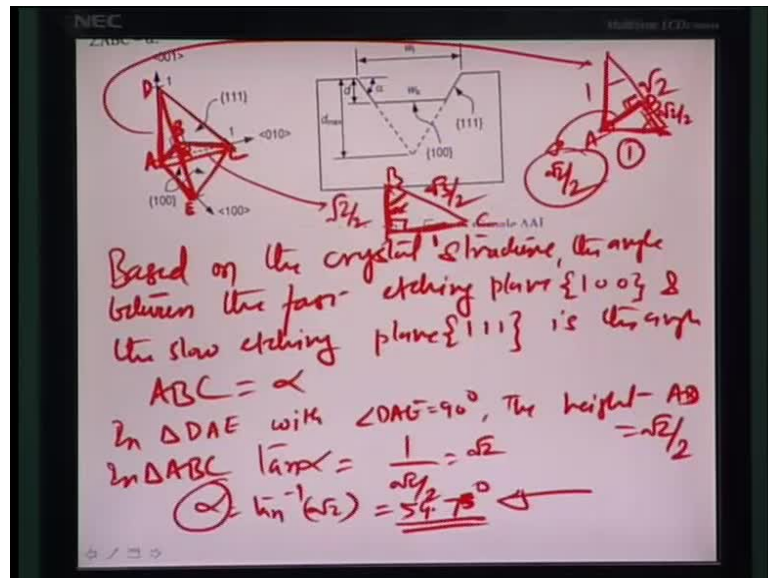 NEC
∠ABC = α.
<001>
D 1
{111}
B
1
<010>
A
C
{100}
E
<100>
w₁
d
α
w₀
dₘₐₓ
{111}
{100}
√2
1
√2/2
A
1
√2/2
B
√2/2
α
C
Based on the crystal structure, the angle
between the fast etching plane {100} &
the slow etching plane {111} is the angle
ABC = α
In ΔDAE with ∠DAE=90°, The height AB
= √2/2
In ΔABC tanα = 1/(√2/2) = √2
α = tan⁻¹(√2) = 54.75°